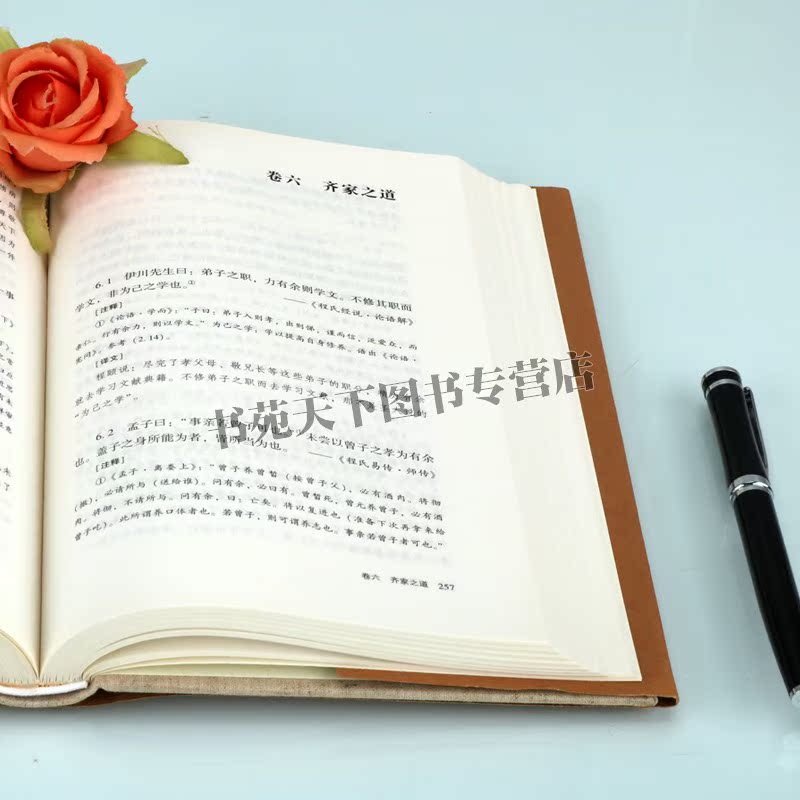 卷六 齐家之道
6.1 伊川先生曰：弟子之职，力有余则学文。不修其职而
学文，非为己之学也。①
——《程氏经说·论语解》
[注释]
①《论语·学而》：“子曰：弟子入则孝，出则悌，谨而信，泛爱众，而
亲仁。行有余力，则以学文。”为己之学：学以提高自身修养。语出《论语·
宪问》，参考（2.14）。
[译文]
程颐说：尽完了孝父母、敬兄长等这些弟子的职分，
就去学习文献典籍。不修弟子之职而去学习文献，的
“为己之学”。
书苑天下图书专营店
6.2 孟子曰：“事亲若曾子可也。”未尝以曾子之孝为有余
也。盖子之身所能为者，皆所当为也。
——《程氏易传·师传》
[注释]
①《孟子·离娄上》：“曾子养曾晳（按曾子父），必有酒肉。将彻
（撤），必请所与（送给谁）。问有余，必曰有。曾晳死，曾元养曾子，必有酒
肉。将彻，不请所与。问有余，曰：亡矣。将以复进也（准备下次再拿来给
曾子吃）。此所谓养口体者也。若曾子，则可谓养志也。事亲若曾子者可也。”
卷六 齐家之道 257